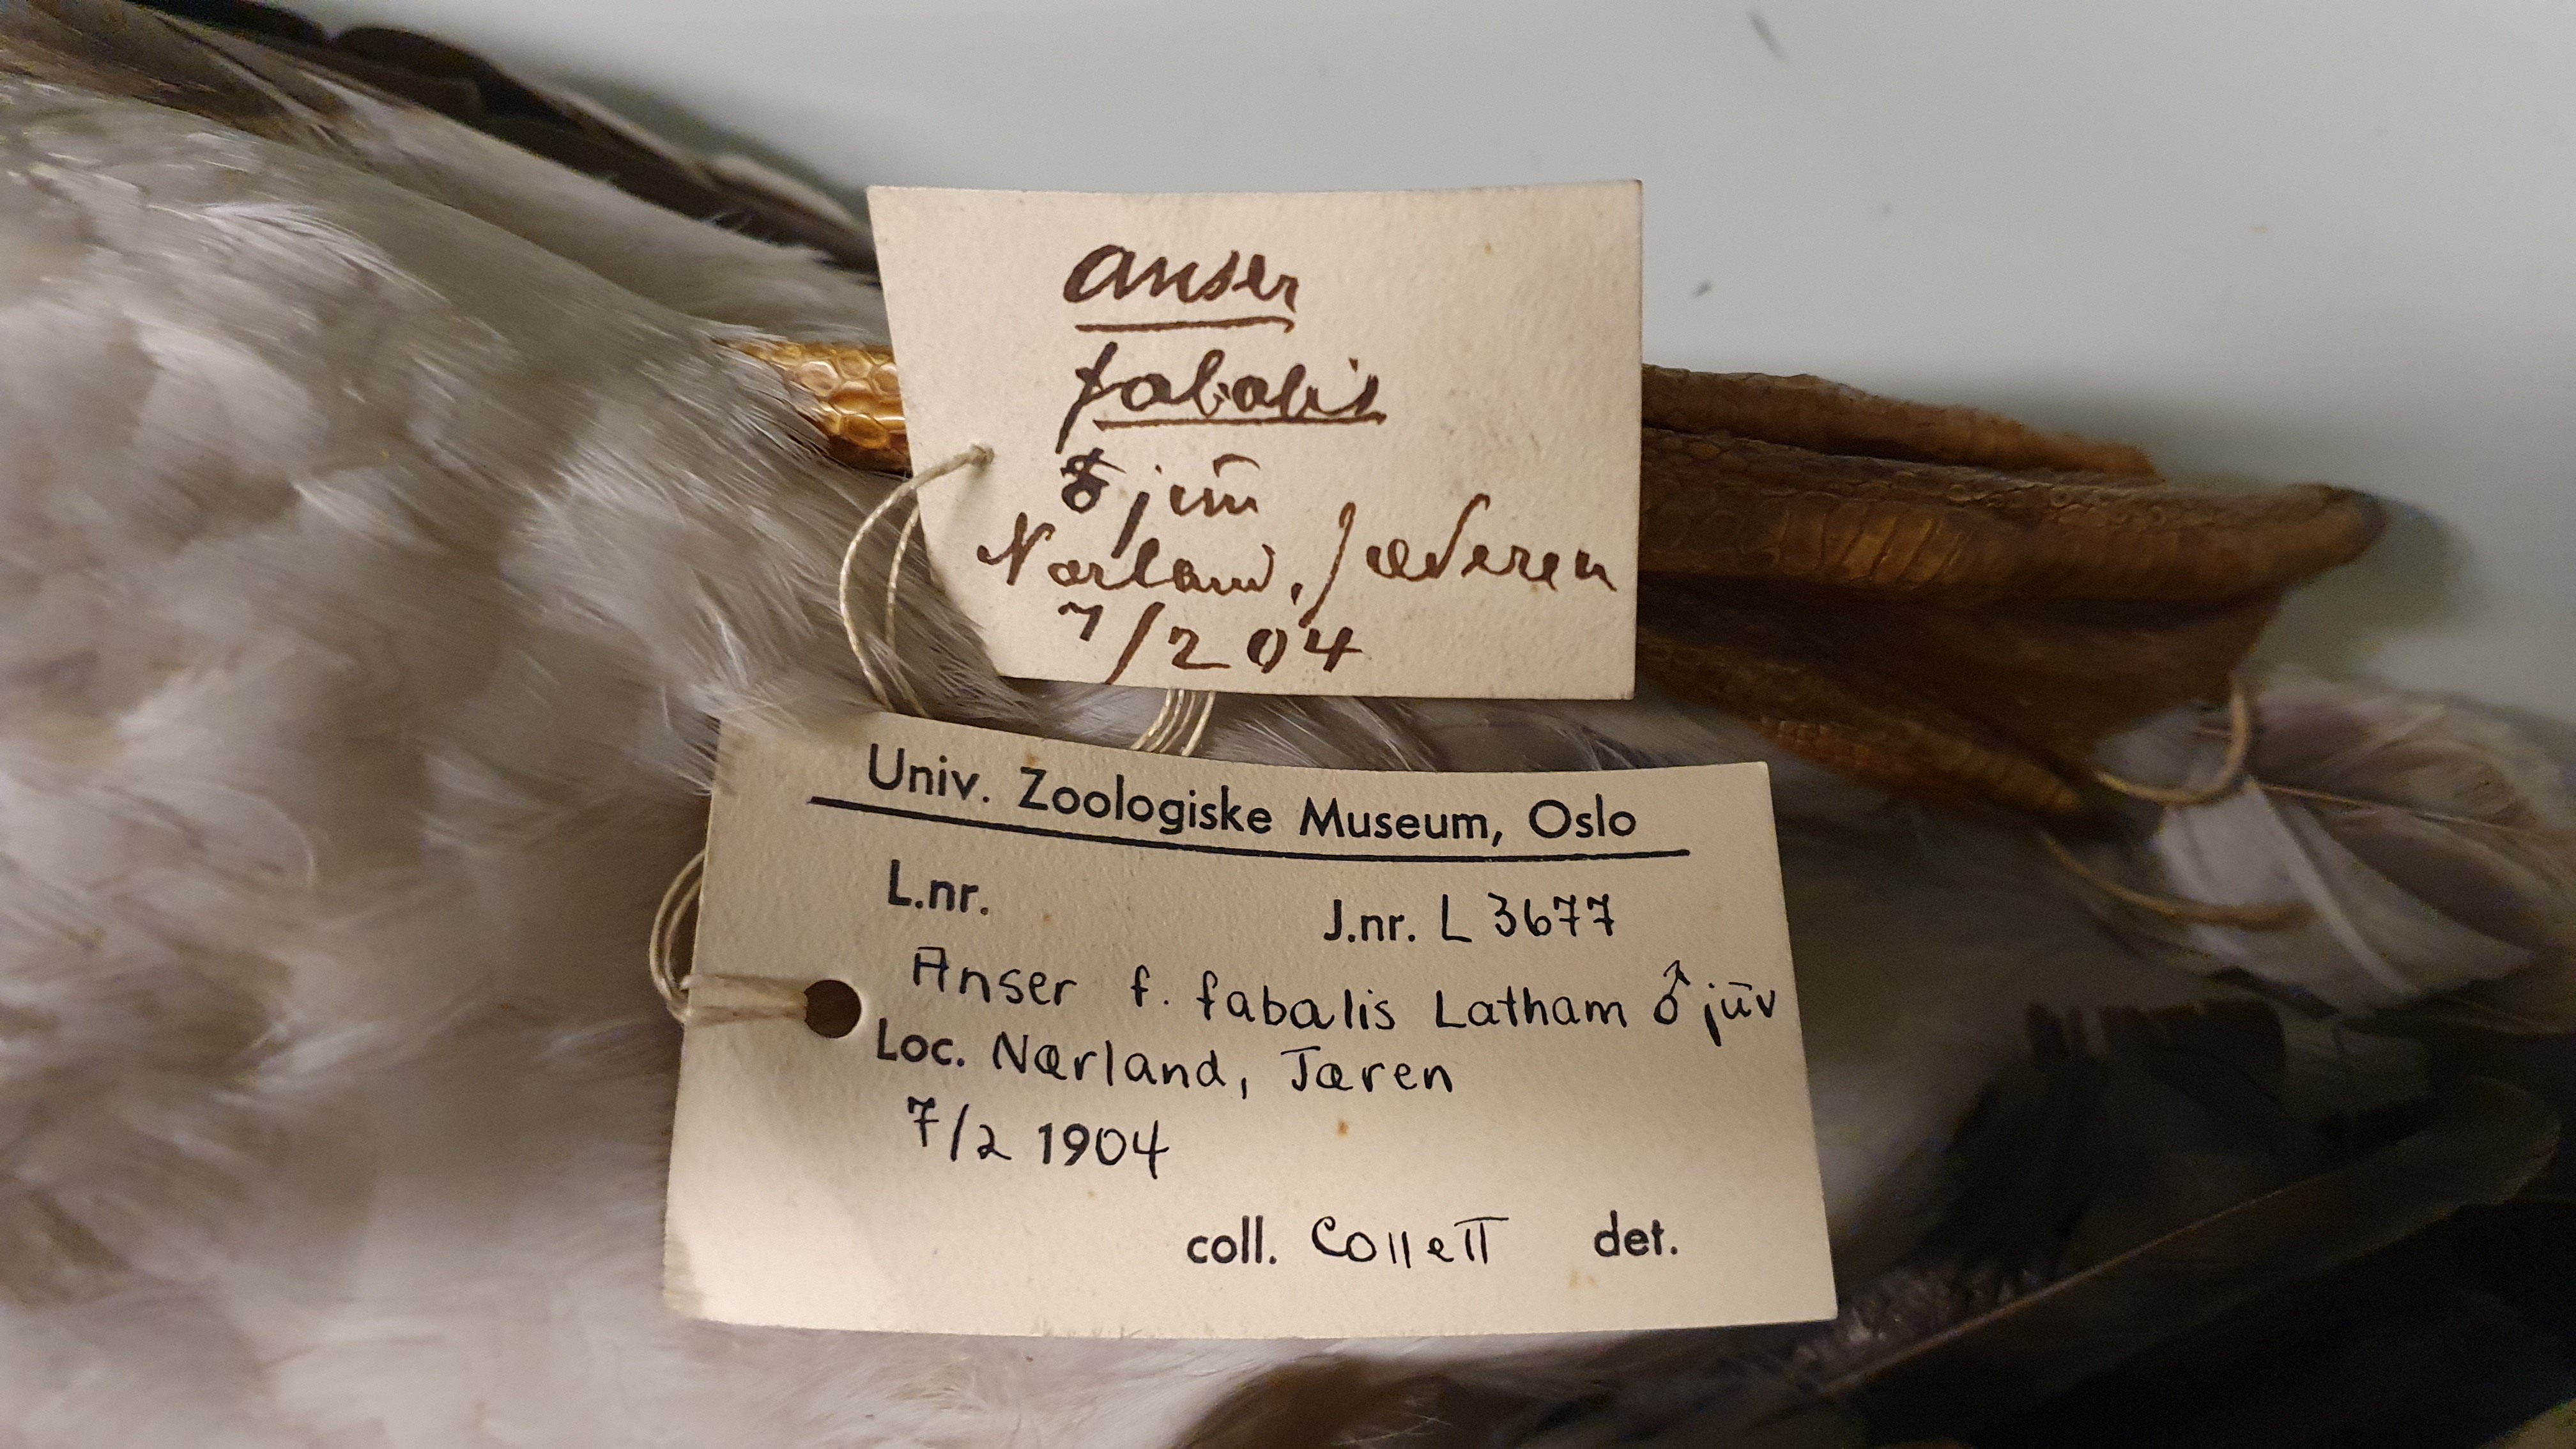 Anser
fabalis
♂ juv
Nærland, Jæderen
7/2 04
Univ. Zoologiske Museum, Oslo
L.nr. J.nr. L 3677
Anser f. fabalis Latham ♂ juv
Loc. Nærland, Jæren
7/2 1904
coll. Collett det.